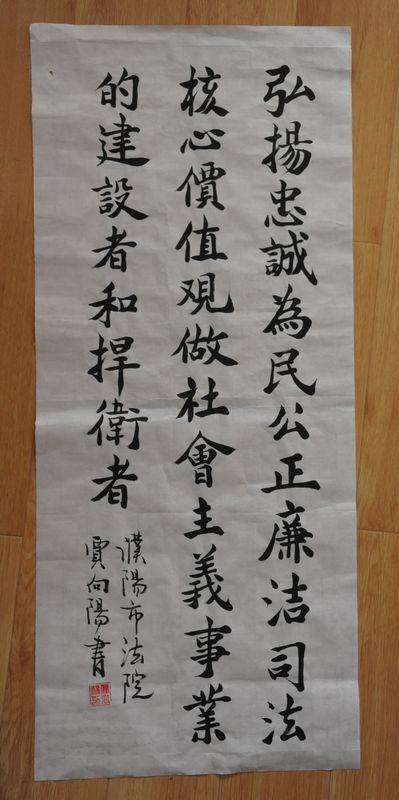 弘揚忠誠為民公正廉洁司法
核心價值观做社會主義事業
的建設者和捍衛者
濮陽市法院
賈向陽書